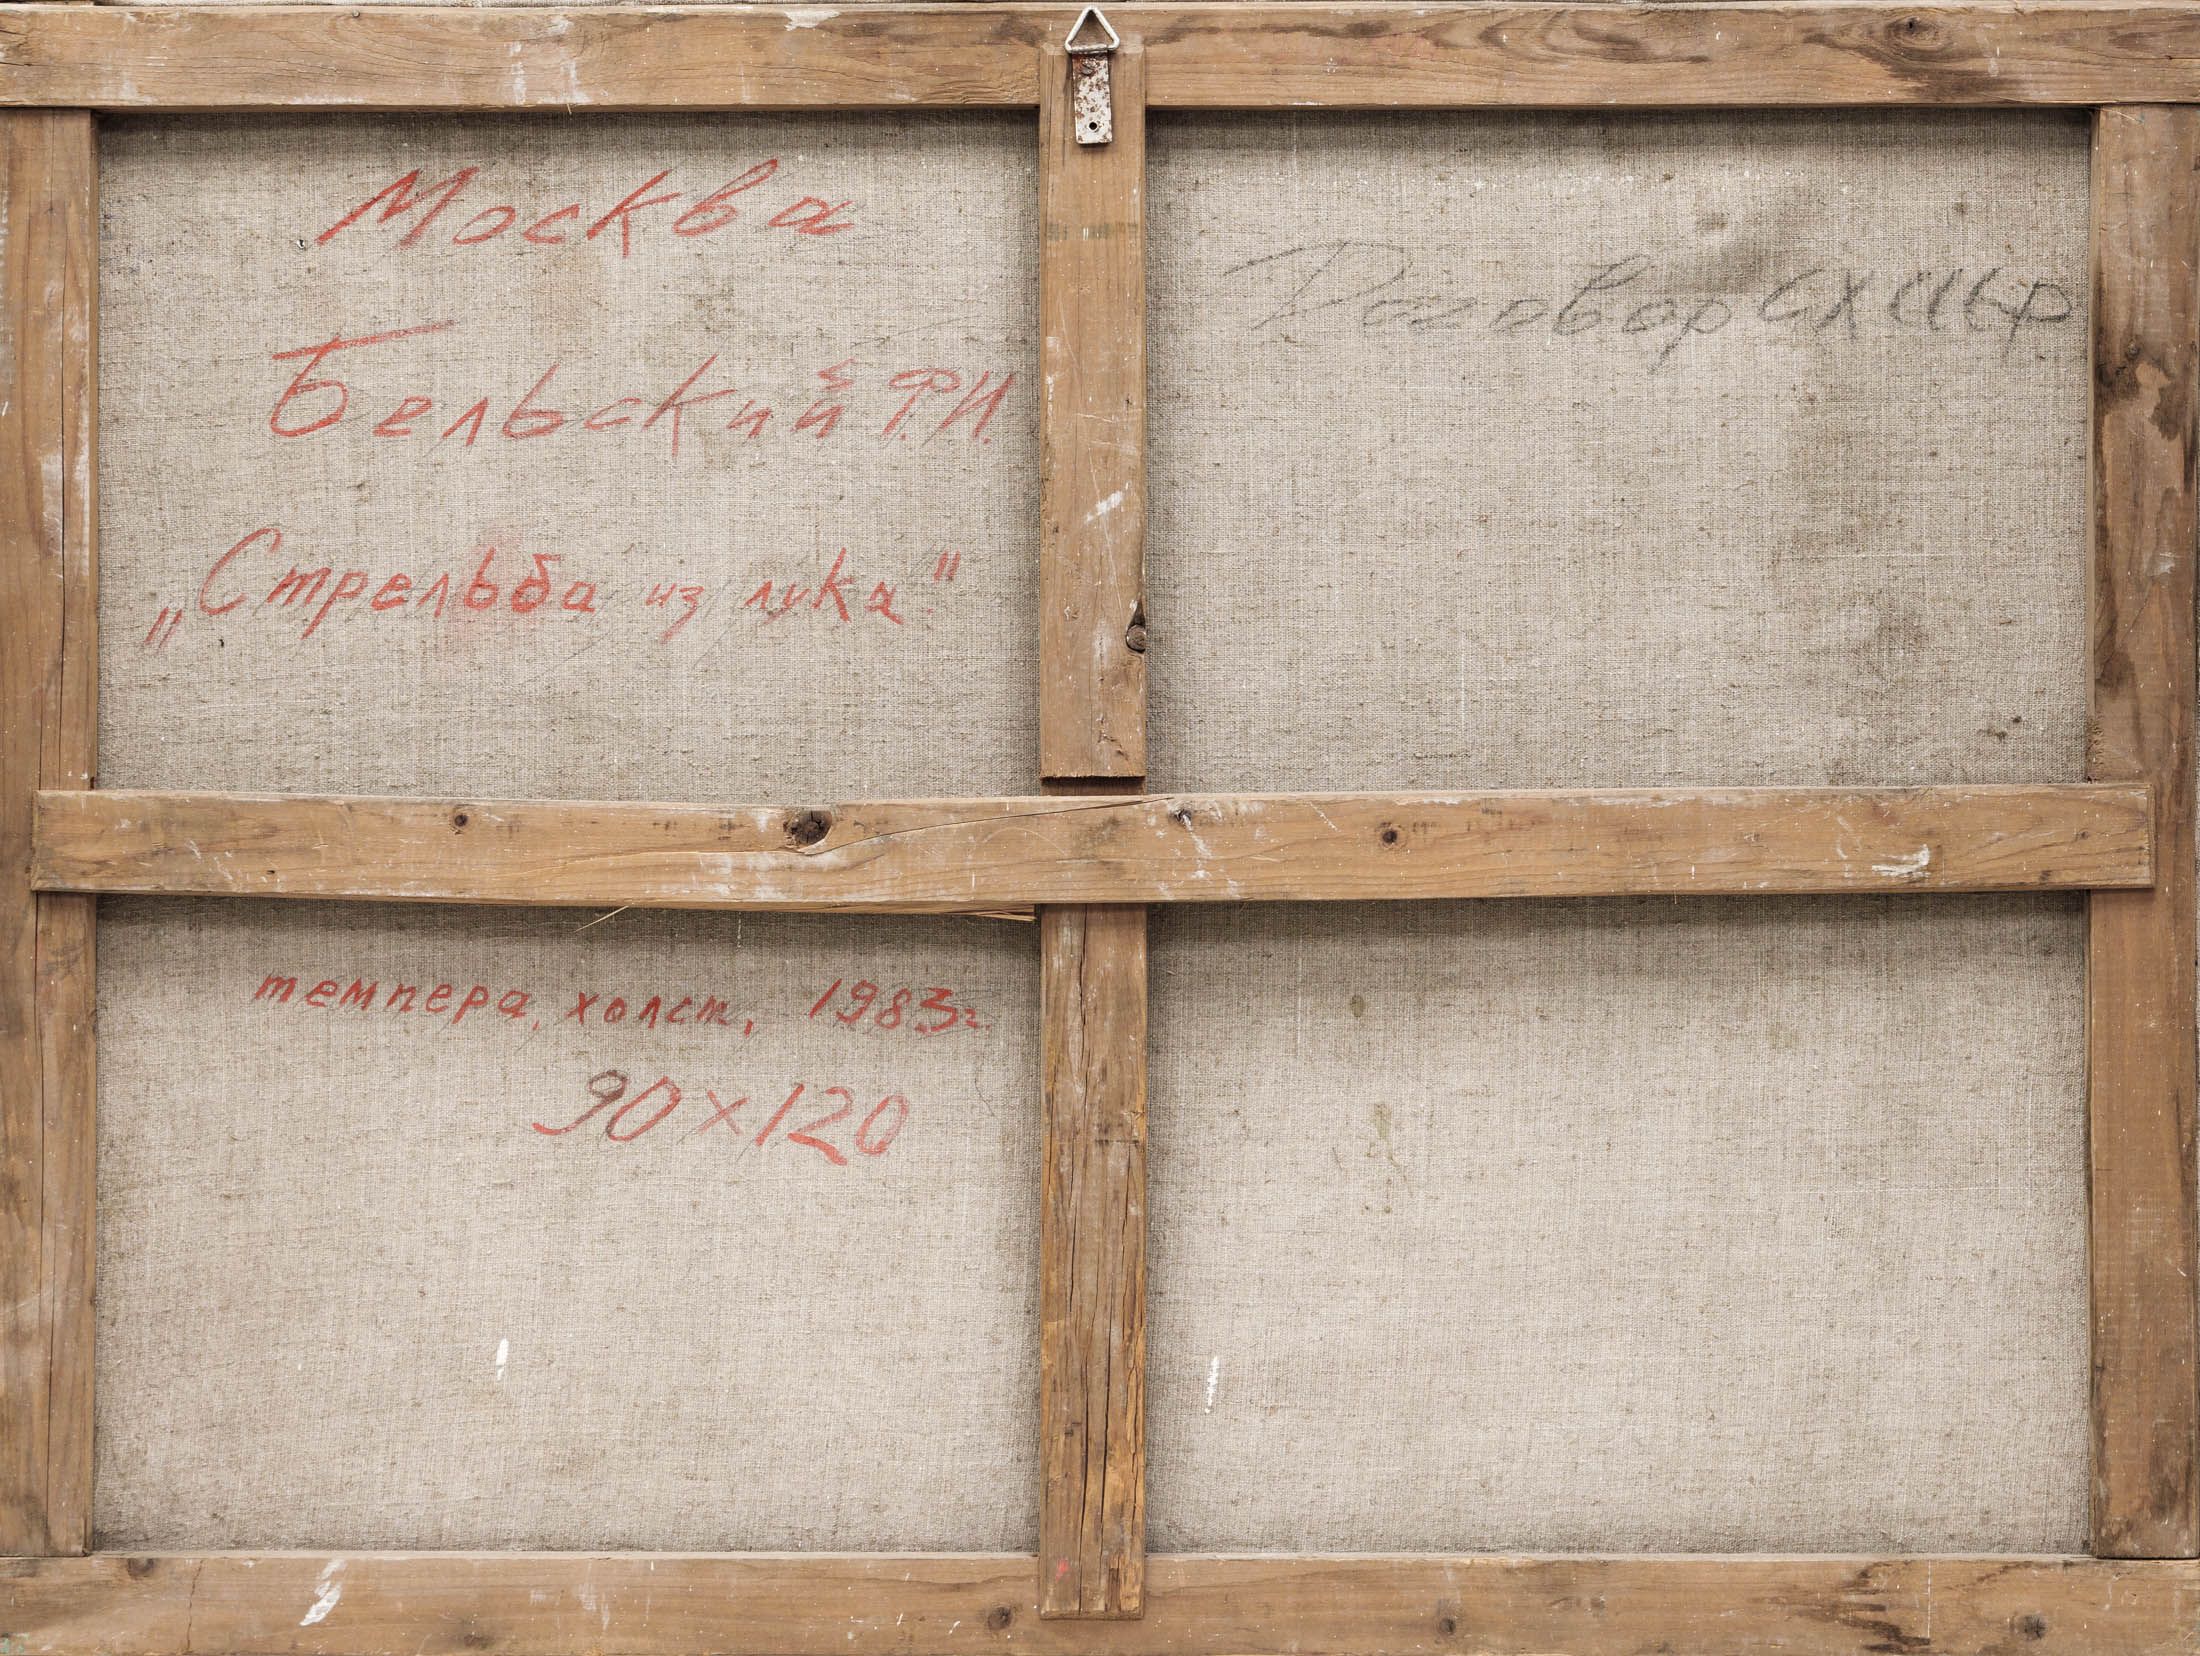 Москва
Бельский Ф.И.
„Стрельба из лука"
темпера, холст, 1983г.
90×120
Договор СХ СССР